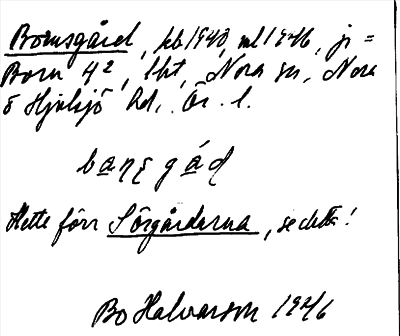 Bornsgård, kb 1940, ml 1946, j =
Born 4², lht, Nora sn, Nora
o Hjulsjö hd. Ör. l.
Hette förr Sörgårdarna, se detta!
Bo Halvarson 1946